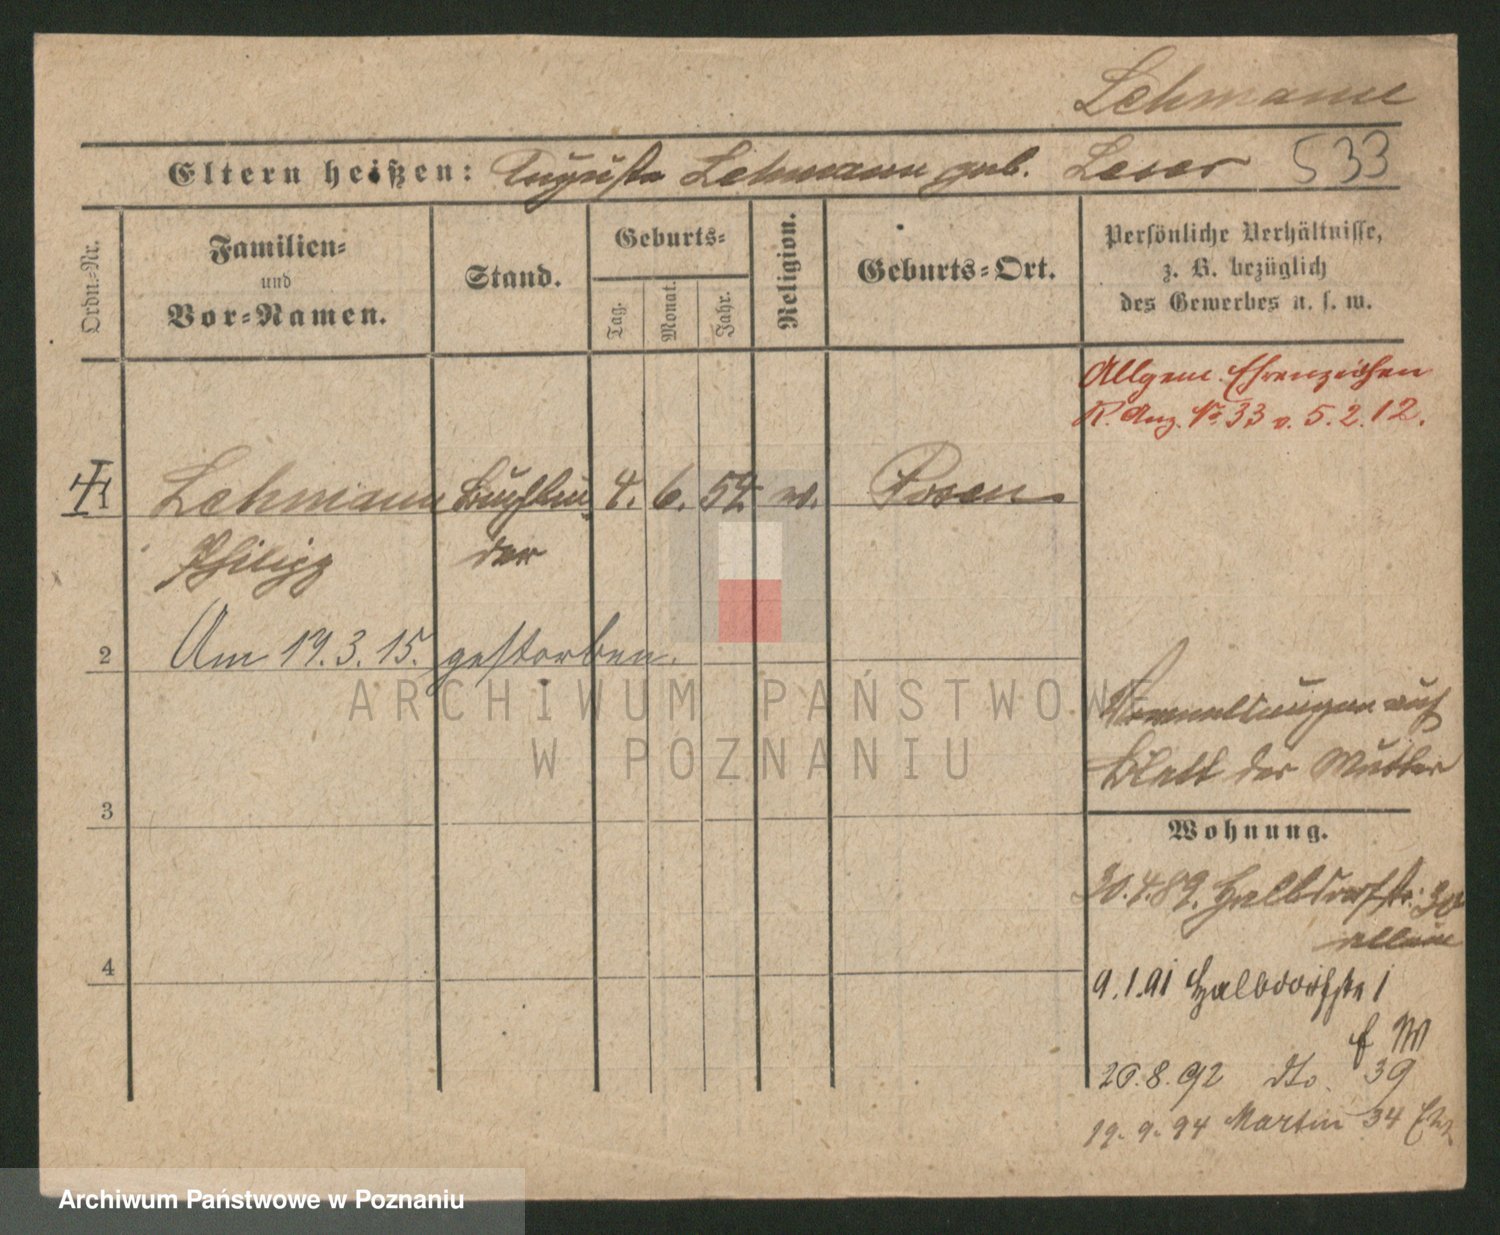 Lehmann
Eltern heißen: Auguste Lehmann geb. Leser 533
Ordn.-Nr.
Familien- und Vor-Namen.
Stand.
Geburts-
Tag.
Monat.
Jahr.
Religion.
Geburts-Ort.
Persönliche Verhältnisse,
z. B. bezüglich
des Gewerbes u. s. w.
Allgem. Ehrenzeichen
R. Anz. No 33 v. 5.2.12.
1 Lehmann Buchbin 4. 6. 54. m. Posen
Philipp der
2 Am 19.3.15. gestorben.
ARCHIWUM PAŃSTWOWE
W POZNANIU
auf
Blatt der Mutter
3
Wohnung.
30.4.89. Halbdorfstr. 30
allein
4
9.1.91 Halbdorfstr 1
26.8.92 dto. 39
19.9.94 Martin 34
Archiwum Państwowe w Poznaniu